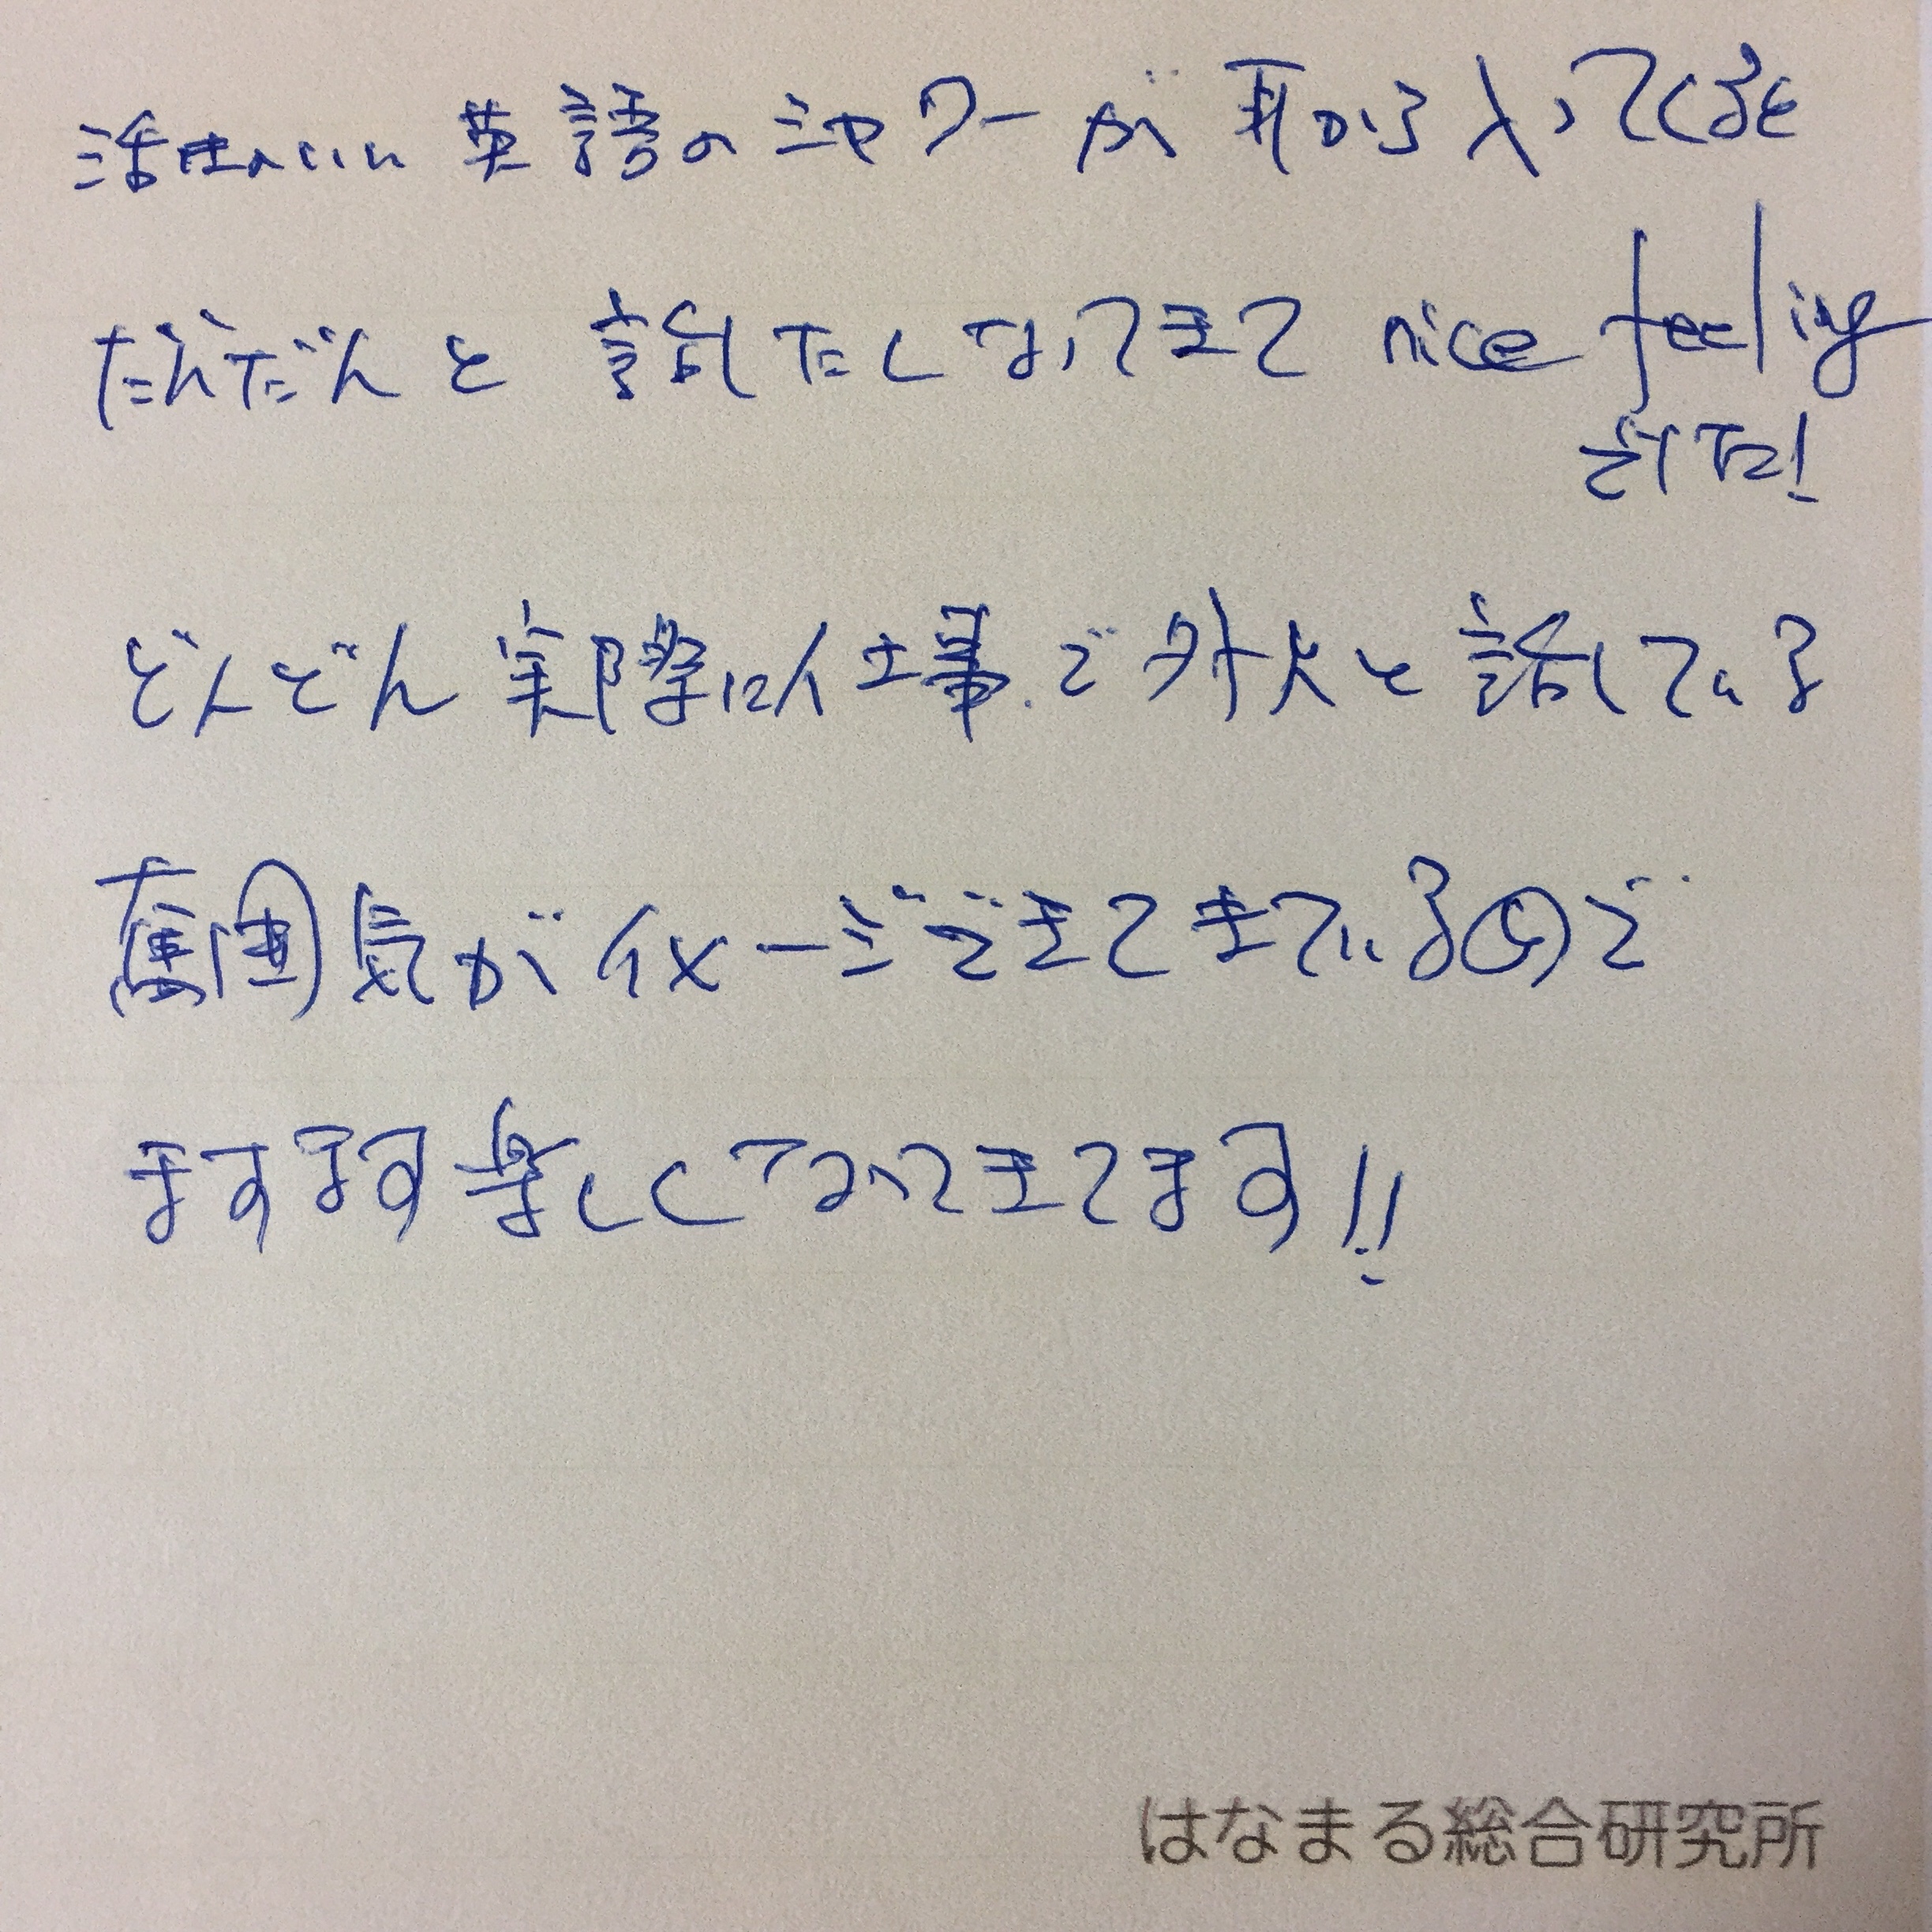 活性のいい英語のシャワーが耳から入ってくると
だんだんと話したくなってきて nice feeling
でした!
どんどん実際に仕事で外人と話している
雰囲気がイメージできてきているので
ますます楽しくなってきてます!!
はなまる総合研究所